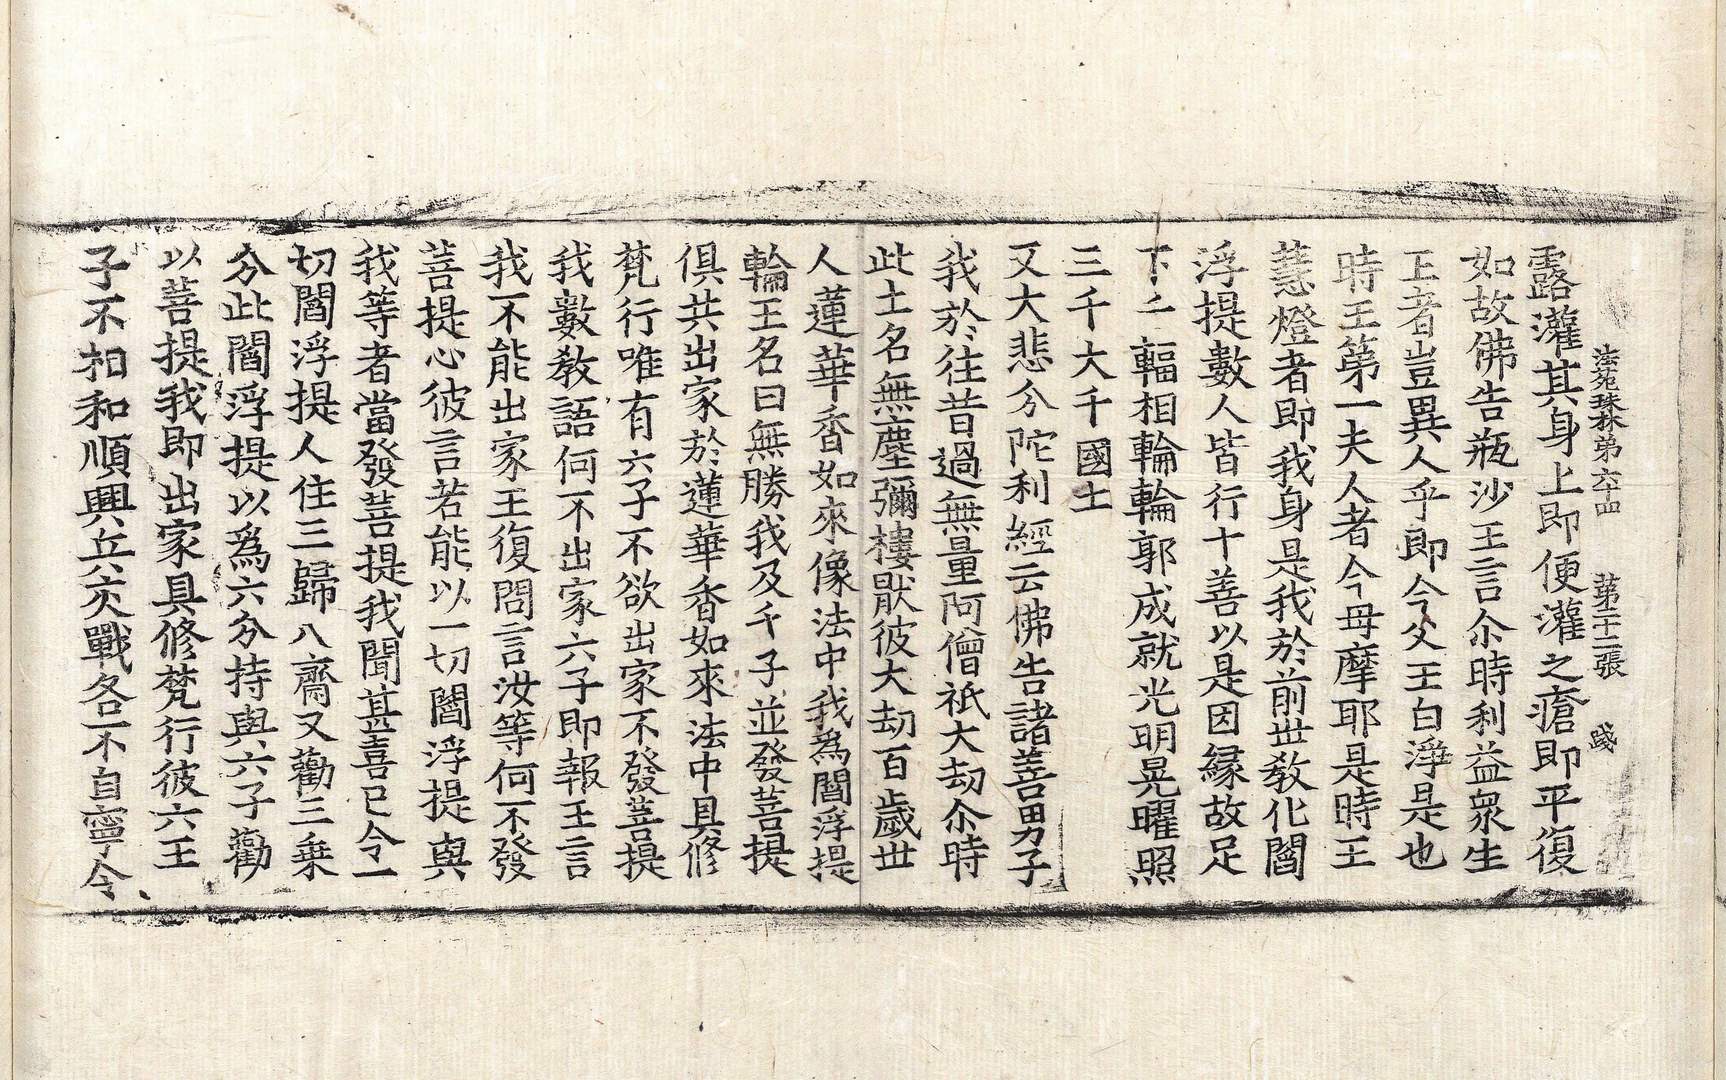 法苑珠林第六十四 第二十二張 踐
露灌其身上即便灌之瘡即平復
如故佛告瓶沙王言尒時利益衆生
王者豈異人乎即今父王白淨是也
時王第一夫人者今毋摩耶是時王
慧燈者即我身是我於前世教化閻
浮提數人皆行十善以是因縁故足
下二輻相輪輪郭成就光明晃曜照
三千大千國土
又大悲分陀利經云佛告諸善男子
我於往昔過無量阿僧祇大劫尒時
此土名無塵彌樓猒彼大劫百歲世
人蓮華香如來像法中我爲閻浮提
輪王名曰無勝我及千子並發菩提
俱共出家於蓮華香如來法中具修
梵行唯有六子不欲出家不發菩提
我數教語何不出家六子即報王言
我不能出家王復問言汝等何不發
菩提心彼言若能以一切閻浮提與
我等者當發菩提我聞甚喜已令一
切閻浮提人住三歸八齋又勸三乗
分此閻浮提以爲六分持與六子勸
以菩提我即出家具修梵行彼六王
子不相和順興兵交戰各不自寧令